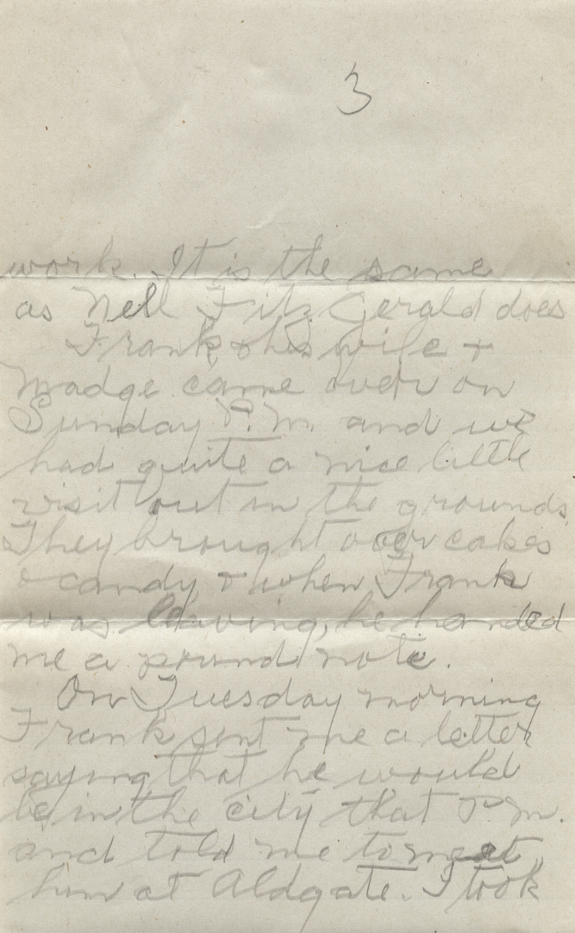 3
work. It is the same
as Nell Fitz Gerald does
Frank & his wife +
Madge came over on
Sunday P.M. and we
had quite a nice little
visit out in the grounds.
They brought over cakes
& candy, & when Frank
was leaving, he handed
me a pound note.
On Tuesday morning
Frank sent me a letter
saying that he would
be in the city that P.M.
and told me to meet
him at Aldgate. I took